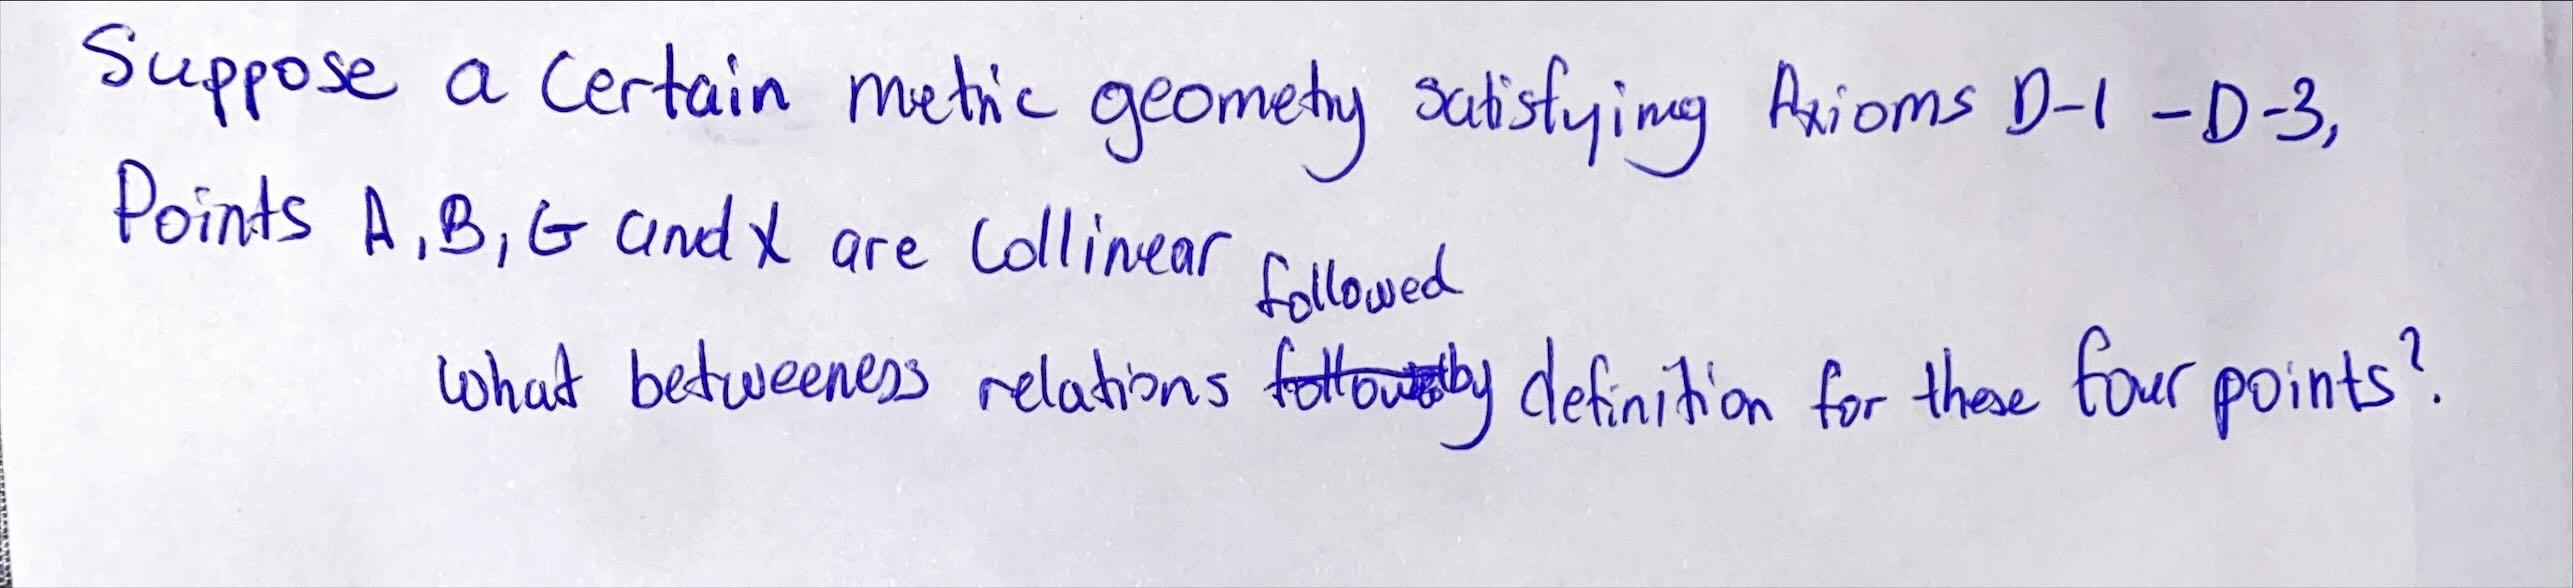 Suppose a certain metric geometry satisfying Axioms D-1 - D-3,
Points A, B, G and X are collinear
followed
What betweeness relations by definition for these four points?